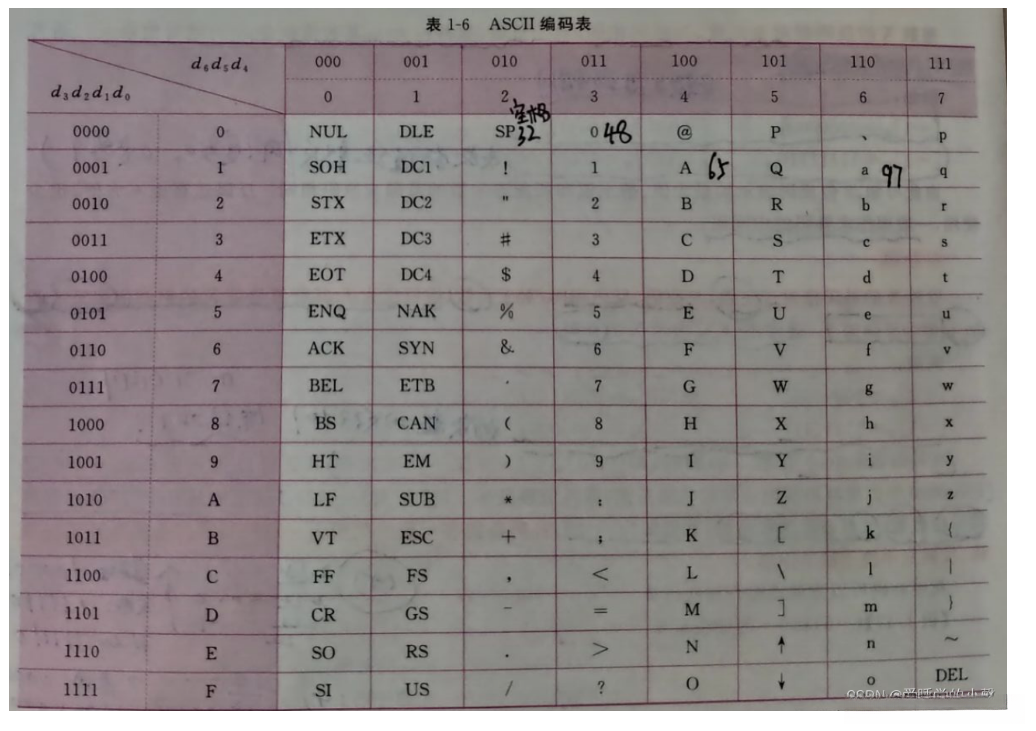 表 1-6 ASCII 编码表
d6d5d4 000 001 010 011 100 101 110 111
d3d2d1d0 0 1 2 3 4 5 6 7
空格
0000 0 NUL DLE SP 32 0 48 @ P 、 p
0001 1 SOH DC1 ! 1 A 65 Q a 97 q
0010 2 STX DC2 " 2 B R b r
0011 3 ETX DC3 # 3 C S c s
0100 4 EOT DC4 $ 4 D T d t
0101 5 ENQ NAK % 5 E U e u
0110 6 ACK SYN & 6 F V f v
0111 7 BEL ETB ' 7 G W g w
1000 8 BS CAN ( 8 H X h x
1001 9 HT EM ) 9 I Y i y
1010 A LF SUB * : J Z j z
1011 B VT ESC + ; K [ k {
1100 C FF FS , < L \ l |
1101 D CR GS - = M ] m }
1110 E SO RS . > N ↑ n ~
1111 F SI US / ? O ↓ o DEL
CSDN @爱睡觉的小馨